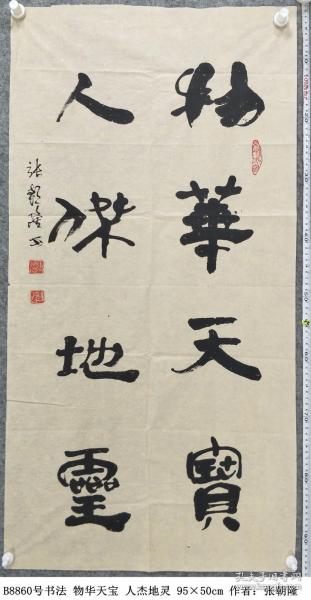 物華天寶
人傑地靈
張朝隆书
B8860号书法 物华天宝 人杰地灵 95×50cm 作者：张朝隆